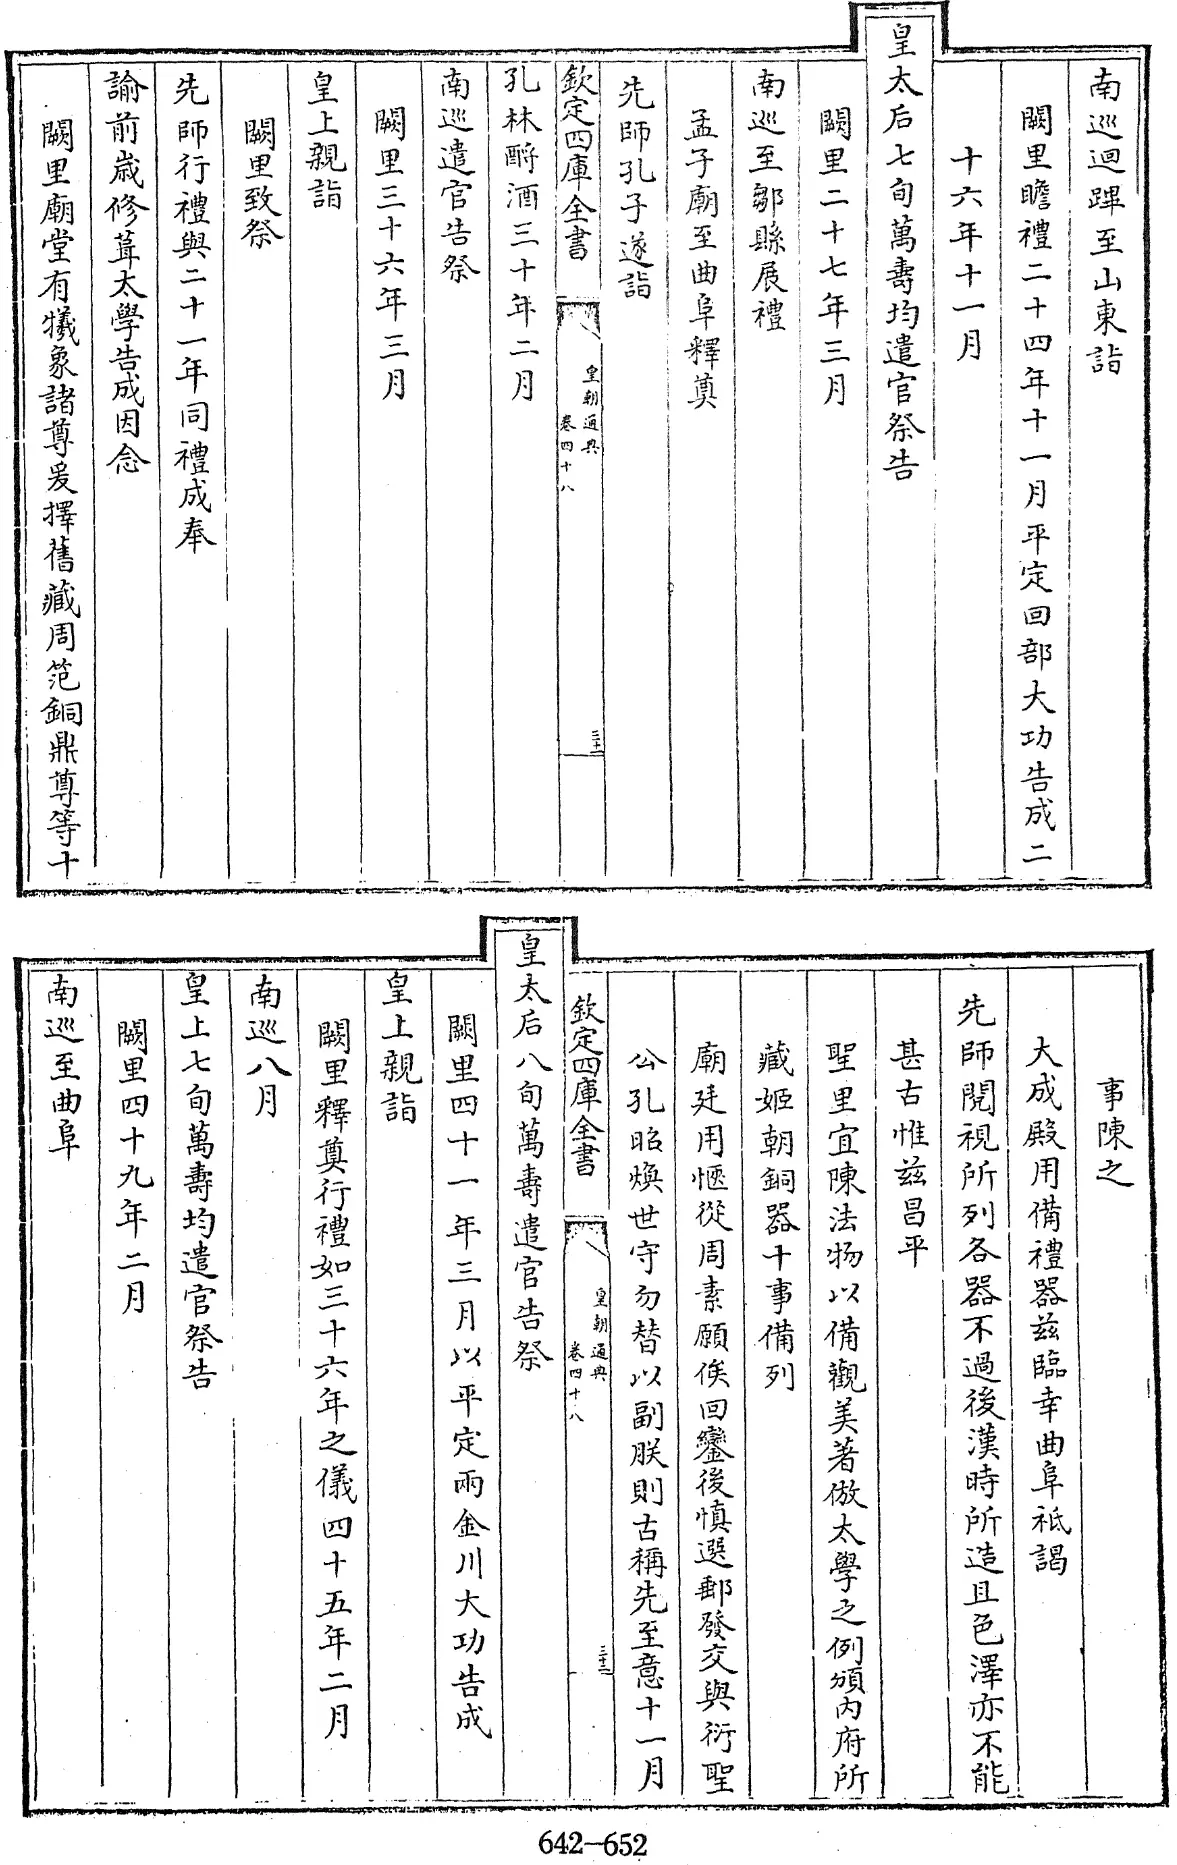 南巡迴蹕至山東詣
闕里瞻禮二十四年十一月平定回部大功告成二
十六年十一月
皇太后七旬萬壽均遣官祭告
闕里二十七年三月
南巡至鄒縣展禮
孟子廟至曲阜釋奠
先師孔子遂詣
欽定四庫全書
皇朝通典
卷四十八
三十二
孔林酹酒三十年二月
南巡遣官告祭
闕里三十六年三月
皇上親詣
闕里致祭
先師行禮與二十一年同禮成奉
諭前歲修葺太學告成因念
闕里廟堂有犧象諸尊爰擇舊藏周范銅鼎尊等十
事陳之
大成殿用備禮器茲臨幸曲阜祗謁
先師閱視所列各器不過後漢時所造且色澤亦不能
甚古惟茲昌平
聖里宜陳法物以備觀美著倣太學之例頒內府所
藏姬朝銅器十事備列
廟廷用愜從周素願俟回鑾後慎選郵發交與衍聖
公孔昭煥世守勿替以副朕則古稱先至意十一月
欽定四庫全書
皇朝通典
卷四十八
三十三
皇太后八旬萬壽遣官告祭
闕里四十一年三月以平定兩金川大功告成
皇上親詣
闕里釋奠行禮如三十六年之儀四十五年二月
南巡八月
皇上七旬萬壽均遣官祭告
闕里四十九年二月
南巡至曲阜
642-652